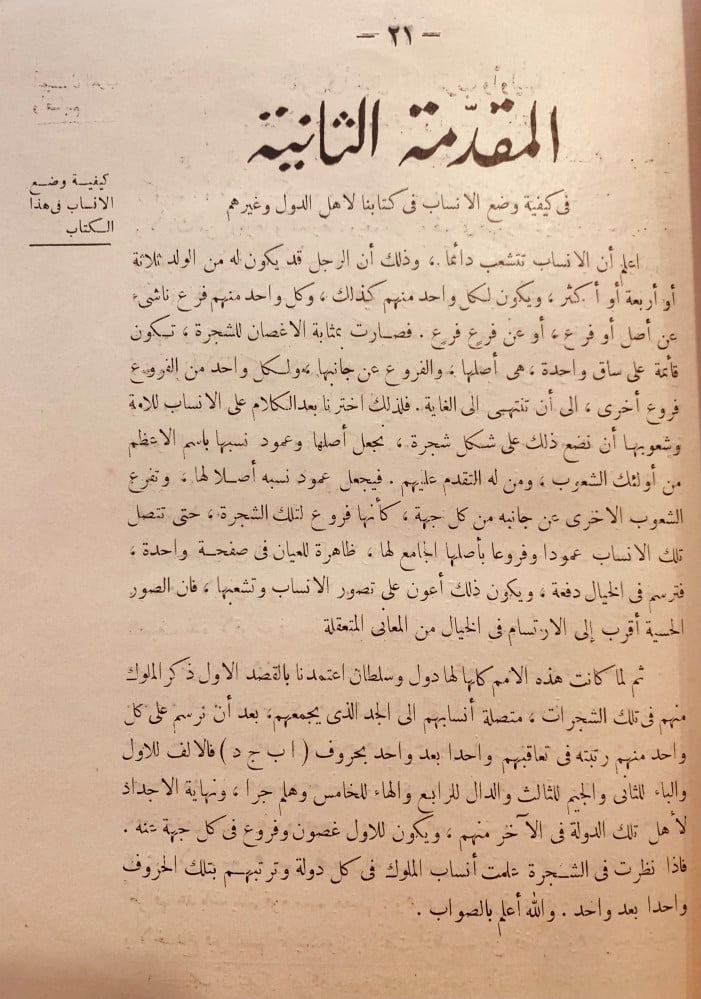 — ٢١ —
المقدّمة الثانية
كيفية وضع
الانساب فى هذا
الكتاب
فى كيفية وضع الانساب فى كتابنا لاهل الدول وغيرهم
اعلم أن الانساب تتشعب دائما ، وذلك أن الرجل قد يكون له من الولد ثلاثة
أو أربعة أو أكثر ، ويكون لكل واحد منهم كذلك ، وكل واحد منهم فرع ناشىء
عن أصل أو فرع ، أو عن فرع فرع . فصارت بمثابة الاغصان للشجرة ، تكون
قائمة على ساق واحدة ، هى أصلها ، والفروع عن جانبها ، ولكل واحد من الفروع
فروع أخرى ، الى أن تنتهى الى الغاية . فلذلك اخترنا بعد الكلام على الانساب للامة
وشعوبها أن نضع ذلك على شكل شجرة ، نجعل أصلها وعمود نسبها باسم الاعظم
من أولئك الشعوب ، ومن له التقدم عليهم . فيجعل عمود نسبه أصلا لها ، وتفرع
الشعوب الاخرى عن جانبه من كل جهة ، كأنها فروع لتلك الشجرة ، حتى تتصل
تلك الانساب عمودا وفروعا بأصلها الجامع لها ، ظاهرة للعيان فى صفحة واحدة ،
فترسم فى الخيال دفعة ، ويكون ذلك أعون على تصور الانساب وتشعبها ، فان الصور
الحسية أقرب إلى الارتسام فى الخيال من المعانى المتعقلة
ثم لما كانت هذه الامم كلها لها دول وسلطان اعتمدنا بالقصد الاول ذكر الملوك
منهم فى تلك الشجرات ، متصلة أنسابهم الى الجد الذى يجمعهم، بعد أن نرسم على كل
واحد منهم رتبته فى تعاقبهم واحدا بعد واحد بحروف (ا ب ج د) فالالف للاول
والباء للثانى والجيم للثالث والدال للرابع والهاء للخامس وهلم جرا ، ونهاية الاجداد
لأهل تلك الدولة فى الآخر منهم ، ويكون للاول غصون وفروع فى كل جهة عنه .
فاذا نظرت فى الشجرة علمت أنساب الملوك فى كل دولة وترتبهم بتلك الحروف
واحدا بعد واحد . والله أعلم بالصواب .